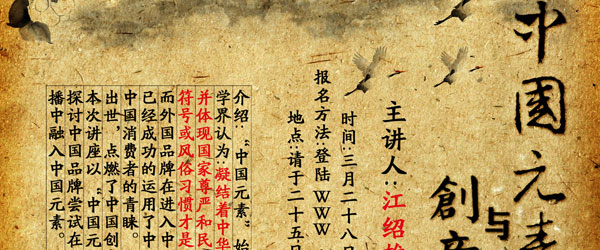 中國元素
与
創意
主讲人:江绍
时间:三月二十八
报名方法:登陆WWW
地点:请于二十五
介绍:“中国元素”始
学界认为:凝结着中华
并体现国家尊严和民
符号或风俗习惯才是
而外国品牌在进入中
已经成功的运用了中
中国消费者的青睐。
出世,点燃了中国创
本次讲座以“中国元
探讨中国品牌尝试在
播中融入中国元素。